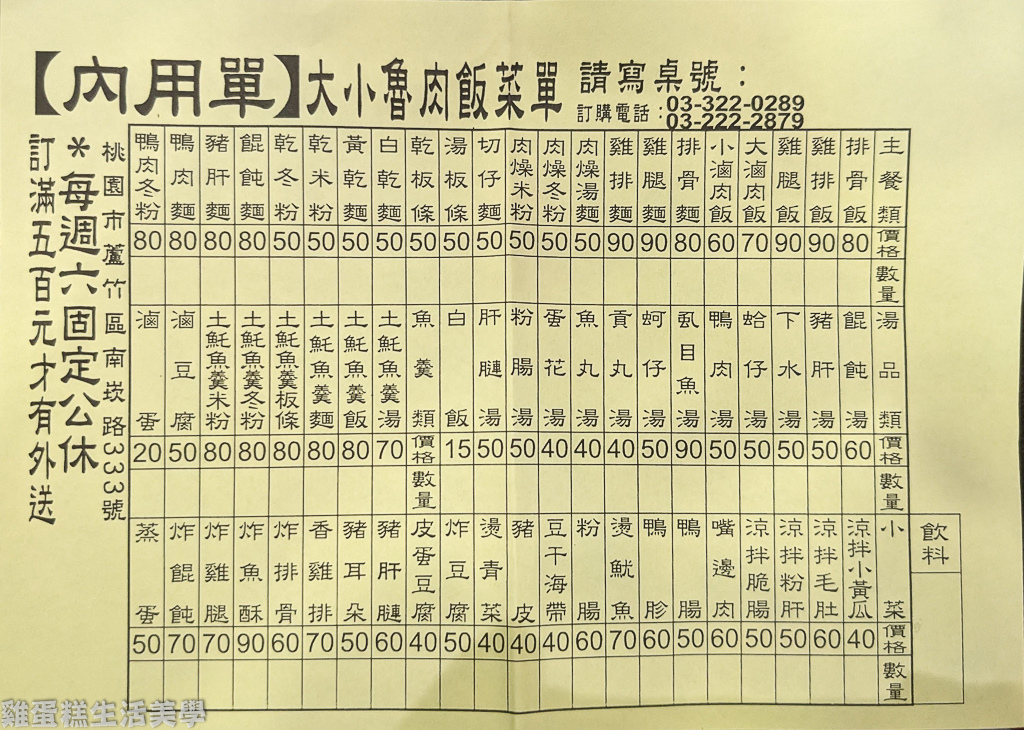 【內用單】大小魯肉飯菜單 請寫桌號：
訂購電話：03-322-0289
03-222-2879
主餐類 價格 數量
排骨飯 80
雞排飯 90
雞腿飯 90
大滷肉飯 70
小滷肉飯 60
排骨麵 80
雞腿麵 90
雞排麵 90
肉燥湯麵 50
肉燥冬粉 50
肉燥米粉 50
切仔麵 50
湯板條 50
乾板條 50
白乾麵 50
黃乾麵 50
乾米粉 50
乾冬粉 50
餛飩麵 80
豬肝麵 80
鴨肉麵 80
鴨肉冬粉 80
湯品類 價格 數量
餛飩湯 60
豬肝湯 50
下水湯 50
蛤仔湯 50
鴨肉湯 50
虱目魚湯 90
蚵仔湯 50
貢丸湯 40
魚丸湯 40
蛋花湯 40
粉腸湯 50
肝膢湯 50
白飯 15
魚羹類 價格 數量
土魠魚羹湯 70
土魠魚羹飯 80
土魠魚羹麵 80
土魠魚羹板條 80
土魠魚羹冬粉 80
土魠魚羹米粉 80
滷豆腐 50
滷蛋 20
飲料
小菜 價格 數量
涼拌小黃瓜 40
涼拌毛肚 60
涼拌粉肝 50
涼拌脆腸 50
嘴邊肉 60
鴨腸 50
鴨胗 60
燙魷魚 70
粉腸 60
豆干海帶 40
豬皮 40
燙青菜 40
炸豆腐 50
皮蛋豆腐 40
豬肝膢 60
豬耳朵 50
香雞排 70
炸排骨 60
炸魚酥 90
炸雞腿 70
炸餛飩 70
蒸蛋 50
桃園市蘆竹區南崁路333號
＊每週六固定公休
訂滿五百元才有外送
雞蛋糕生活美學